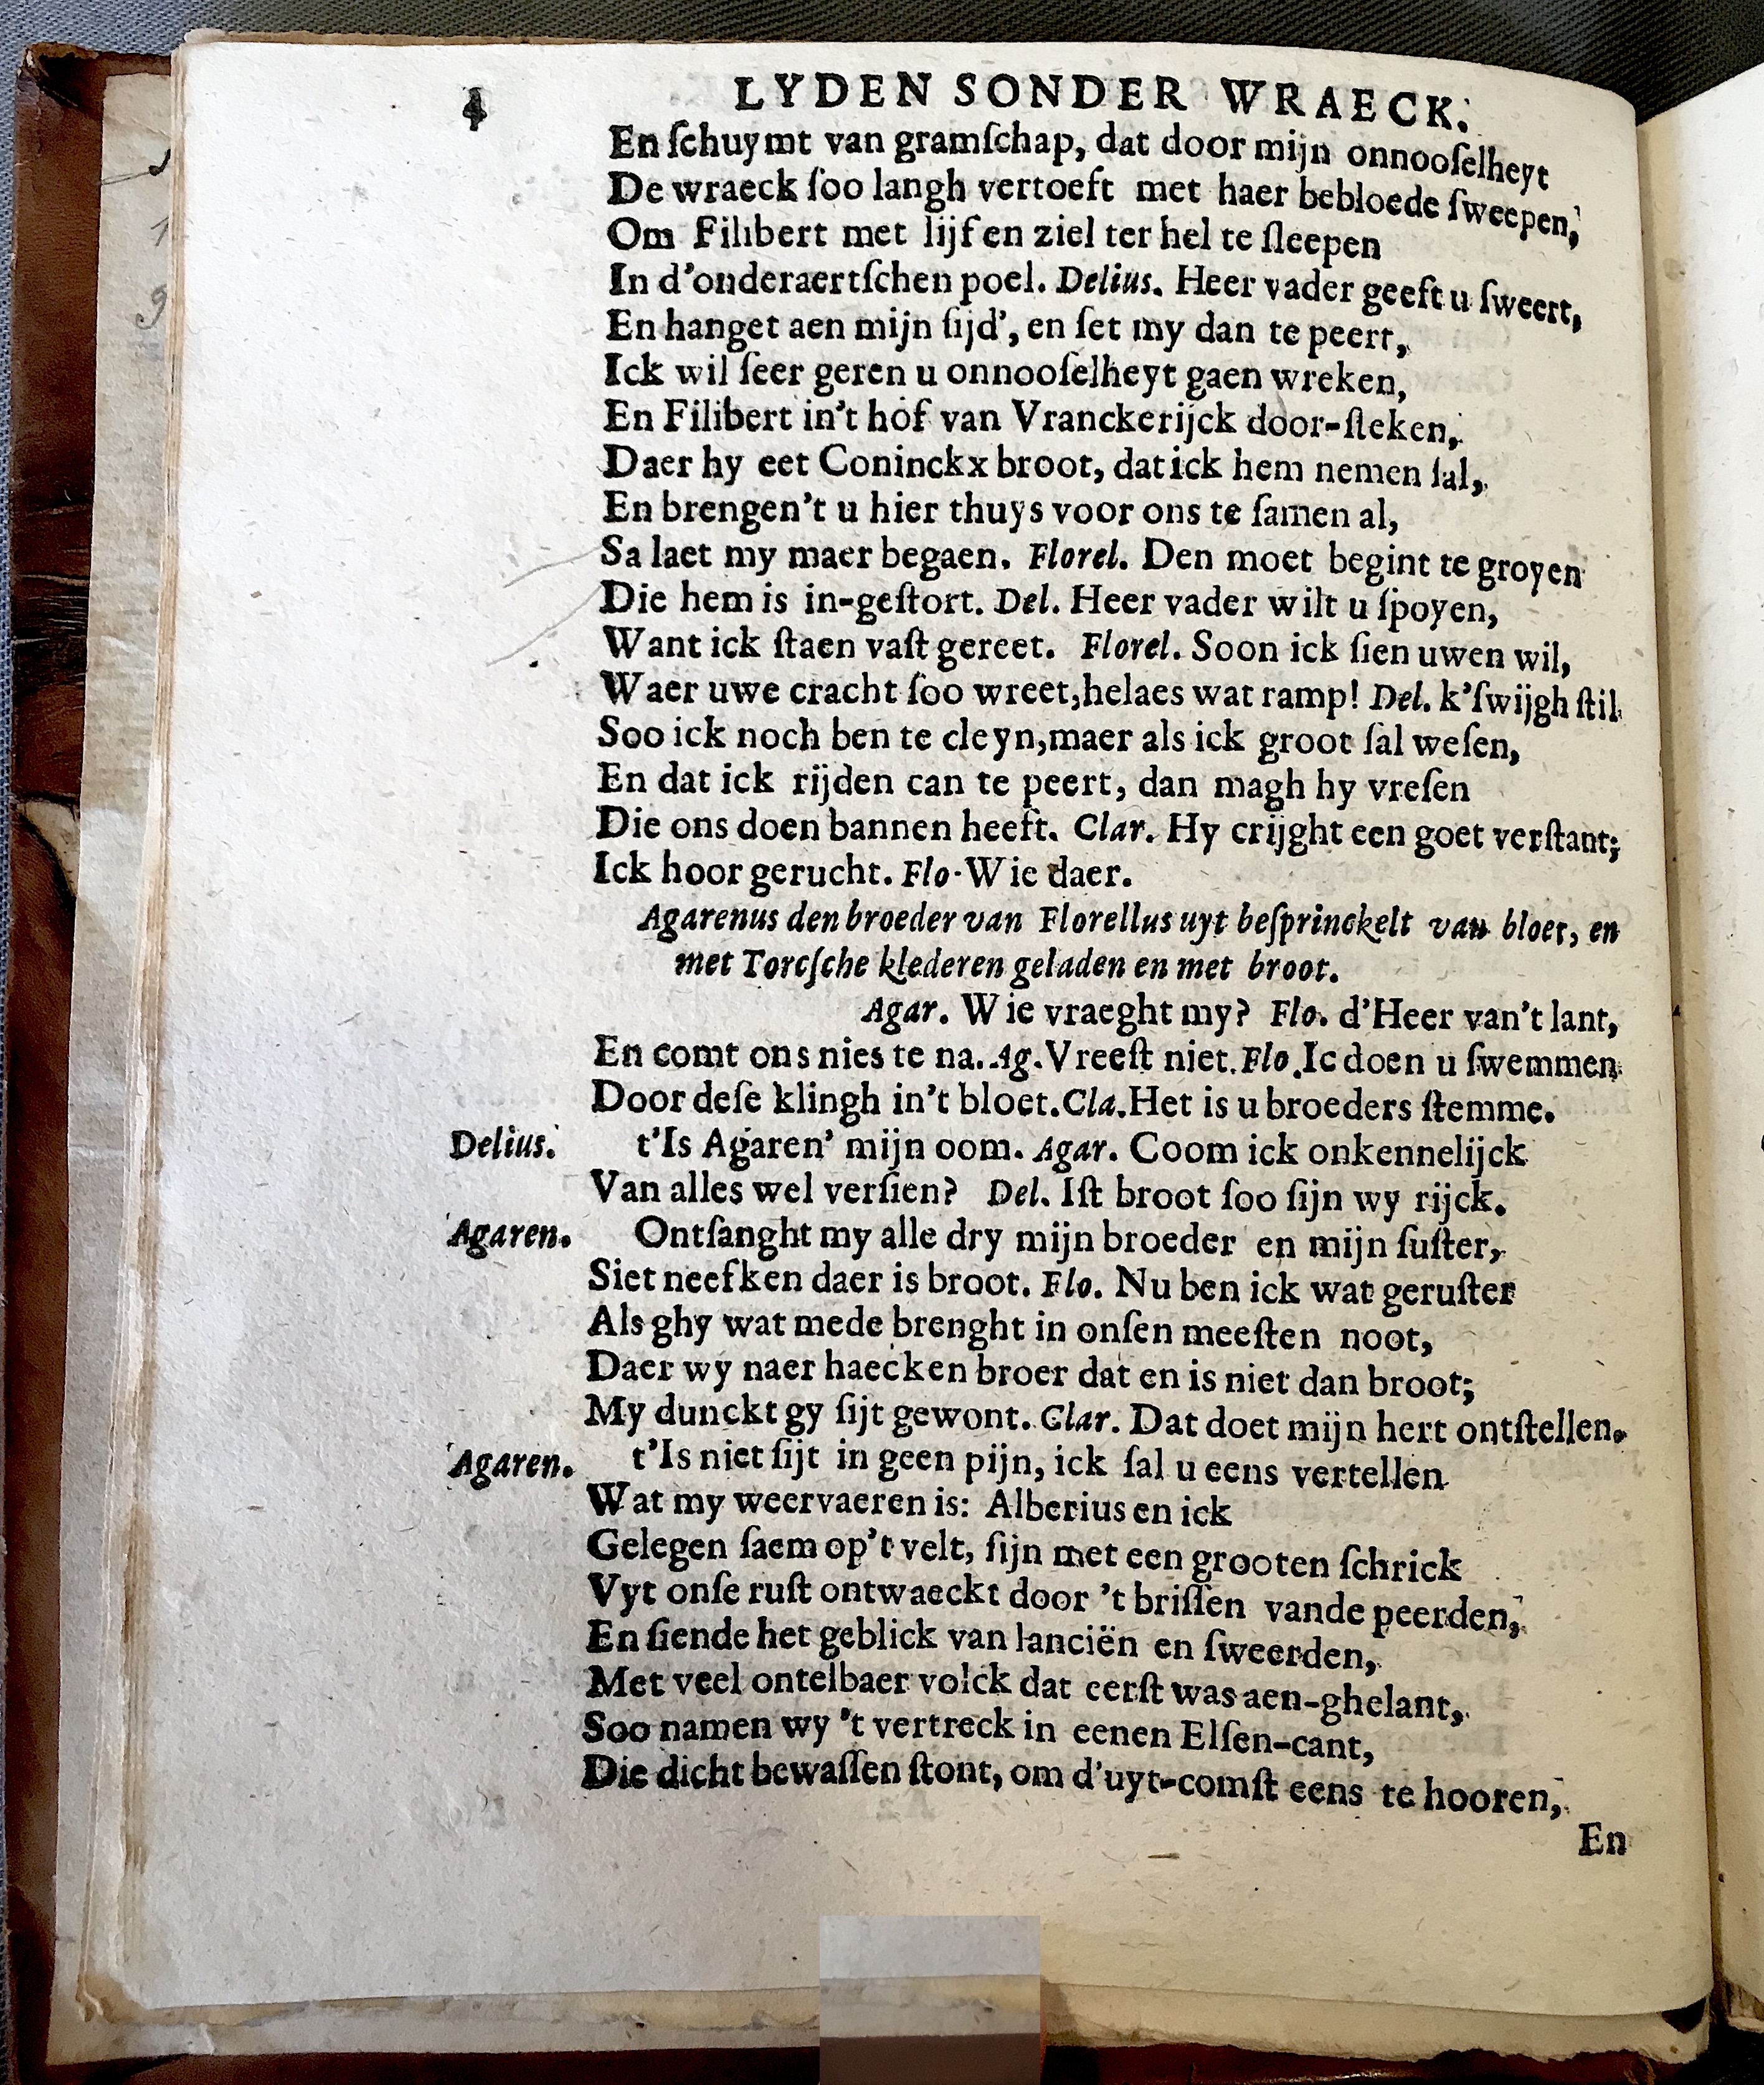 4 LYDEN SONDER WRAECK.
En ſchuymt van gramſchap, dat door mijn onnooſelheyt
De wraeck ſoo langh vertoeft met haer bebloede ſweepen,
Om Filibert met lijf en ziel ter hel te ſleepen
In d'onderaertſchen poel. Delius. Heer vader geeft u ſweert,
En hanget aen mijn ſijd', en ſet my dan te peert,
Ick wil ſeer geren u onnooſelheyt gaen wreken,
En Filibert in't hof van Vranckerijck door-ſteken,
Daer hy eet Coninckx broot, dat ick hem nemen ſal,
En brengen't u hier thuys voor ons te ſamen al,
Sa laet my maer begaen. Florel. Den moet begint te groyen
Die hem is in-geſtort. Del. Heer vader wilt u ſpoyen,
Want ick ſtaen vaſt gereet. Florel. Soon ick ſien uwen wil,
Waer uwe cracht ſoo wreet, helaes wat ramp! Del. k'ſwijgh ſtil
Soo ick noch ben te cleyn, maer als ick groot ſal weſen,
En dat ick rijden can te peert, dan magh hy vreſen
Die ons doen bannen heeft. Clar. Hy crijght een goet verſtant;
Ick hoor gerucht. Flo. Wie daer.
Agarenus den broeder van Florellus uyt beſprinckelt van bloet, en
met Torcſche klederen geladen en met broot.
Agar. Wie vraeght my? Flo. d'Heer van't lant,
En comt ons nies te na. Ag. Vreeſt niet. Flo. Ic doen u ſwemmen
Door deſe klingh in't bloet. Cla. Het is u broeders ſtemme.
Delius. t'Is Agaren' mijn oom. Agar. Coom ick onkennelijck
Van alles wel verſien? Del. Iſt broot ſoo ſijn wy rijck.
Agaren. Ontſanght my alle dry mijn broeder en mijn ſuſter,
Siet neefken daer is broot. Flo. Nu ben ick wat geruſter
Als ghy wat mede brenght in onſen meeſten noot,
Daer wy naer haecken broer dat en is niet dan broot;
My dunckt gy ſijt gewont. Clar. Dat doet mijn hert ontſtellen.
Agaren. t'Is niet ſijt in geen pijn, ick ſal u eens vertellen
Wat my weervaeren is: Alberius en ick
Gelegen ſaem op't velt, ſijn met een grooten ſchrick
Vyt onſe ruſt ontwaeckt door 't briſſen vande peerden,
En ſiende het geblick van lanciën en ſweerden,
Met veel ontelbaer volck dat eerſt was aen-ghelant,
Soo namen wy 't vertreck in eenen Elſen-cant,
Die dicht bewaſſen ſtont, om d'uyt-comſt eens te hooren,
En